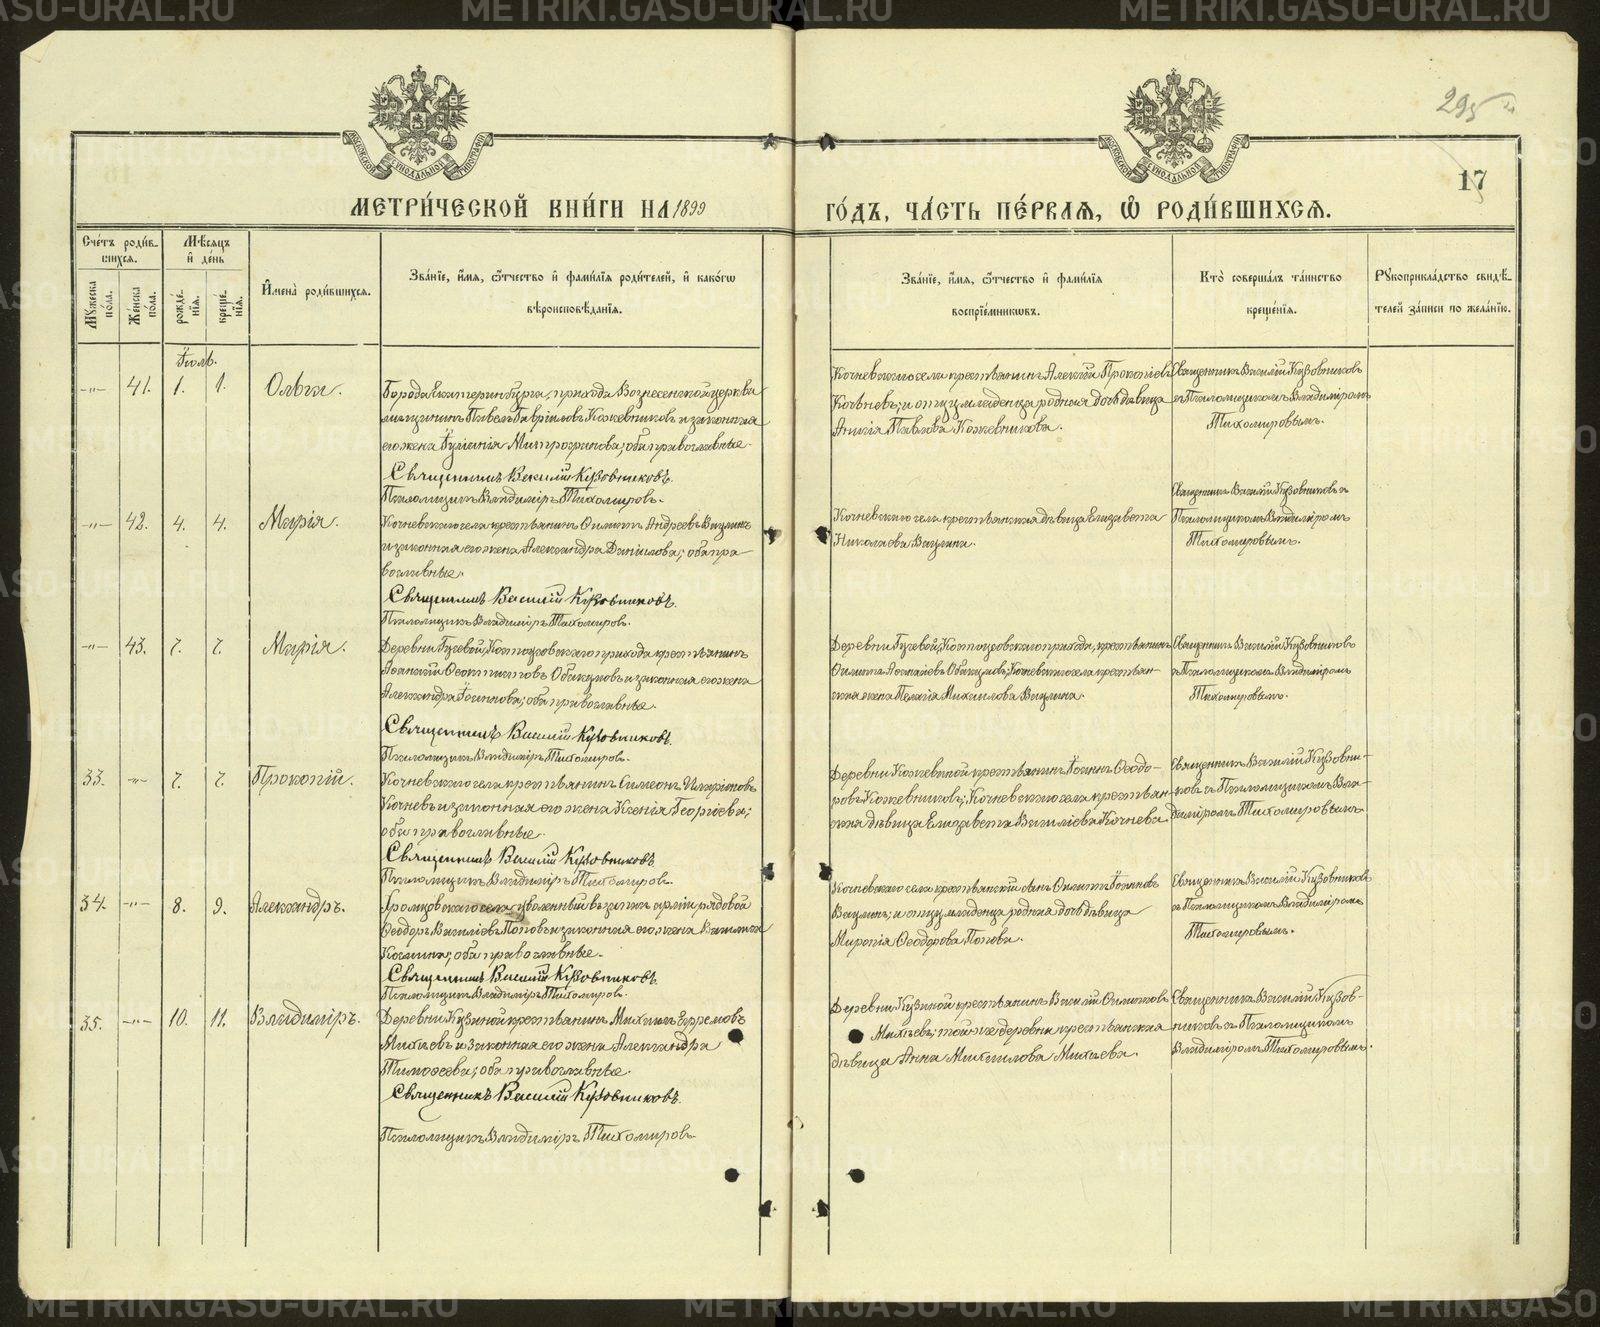 METRIKI.GASO-URAL.RU
295
17
МЕТРИ́ЧЕСКОЙ КНИ́ГИ НА 1899
ГО́ДЪ, ЧА́СТЬ ПЕ́РВАЯ, Ѡ РОДИ́ВШИХСЯ.
Сче́тъ роди́вшихся.
Му́жеска по́ла.
Же́нска по́ла.
Мѣ́сяцъ и де́нь
рожде́нїя.
креще́нїя.
И҆мена̀ роди́вшихся.
Зва́нїе, и҆́мя, ѻ҆́тчество и҆ фами́лїя роди́телей, и҆ како́гѡ
вѣроисповѣ́данїя.
Зва́нїе, и҆́мя, ѻ҆́тчество и҆ фами́лїя
воспрїе́мниковъ.
Кто̀ соверша́лъ та́инство
креще́нїя.
Рꙋкоприкла́дство свидѣ́телей за́писи по жела́нїю.
Іюль.
-"- 41. 1. 1. Ольга.
Города Екатеринбурга, прихода Вознесенской церкви
мещанинъ Павелъ Гавріиловъ Кожевниковъ и законная
его жена Іуліанія Митрофанова; оба православные.
Священникъ Василій Кузовниковъ.
Псаломщикъ Владиміръ Тихомировъ.
Кочневскаго села крестьянинъ Алексій Прокопіевъ
Кочневъ; и отцу младенца родная дочь дѣвица
Павлова Кожевникова.
Священникъ Василій Кузовниковъ
съ Псаломщикомъ Владиміромъ
Тихомировымъ.
-"- 42. 4. 4. Марія.
Кочневскаго села крестьянинъ Филиппъ Андреевъ
и законная его жена Александра Данилова; оба пра-
вославные.
Священникъ Василій Кузовниковъ.
Псаломщикъ Владиміръ Тихомировъ.
Кочневскаго села крестьянская дѣвица Елизавета
Николаева
Священникъ Василій Кузовниковъ съ
Псаломщикомъ Владиміромъ
Тихомировымъ.
-"- 43. 7. 7. Марія.
Деревни Гусевой, прихода крестьянинъ
и законная его жена
Александра Іоаннова; оба православные.
Священникъ Василій Кузовниковъ.
Псаломщикъ Владиміръ Тихомировъ.
Деревни Гусевой, прихода, крестьянинъ
Кочневскаго села крестьян-
ская жена Пелагія Михаилова
Священникъ Василій Кузовниковъ
съ Псаломщикомъ Владиміромъ
Тихомировымъ.
33. -"- 7. 7. Прокопій.
Кочневскаго села крестьянинъ Симеонъ Иларіоновъ
Кочневъ и законная его жена Ксенія Георгіева;
оба православные.
Священникъ Василій Кузовниковъ
Псаломщикъ Владиміръ Тихомировъ.
Деревни крестьянинъ Іоаннъ Ѳеодо-
ровъ Кожевниковъ; Кочневскаго села крестьян-
ская дѣвица Елизавета Василіева Кочнева.
Священникъ Василій Кузовни-
ковъ съ Псаломщикомъ Вла-
диміромъ Тихомировымъ
34. -"- 8. 9. Александръ.
села уволенный въ запасъ арміи рядовой
Ѳеодоръ Василіевъ Поповъ и законная его жена
оба православные.
Священникъ Василій Кузовниковъ.
Псаломщикъ Владиміръ Тихомировъ.
Кочневскаго села крестьянскій сынъ Филиппъ Іоанновъ
и отцу младенца родная дочь дѣвица
Ѳеодорова Попова.
Священникъ Василій Кузовниковъ
съ Псаломщикомъ Владиміромъ
Тихомировымъ.
35. -"- 10. 11. Владиміръ.
Деревни Кузиной крестьянинъ Михаилъ Ефремовъ
Михѣевъ и законная его жена Александра
Тимоѳеева; оба православные.
Священникъ Василій Кузовниковъ.
Псаломщикъ Владиміръ Тихомировъ.
Деревни Кузиной крестьянинъ Василій Филипповъ
Михѣевъ; той же деревни крестьянская
дѣвица Анна Михаилова Михѣева.
Священникъ Василій Кузов-
никовъ съ Псаломщикомъ
Владиміромъ Тихомировымъ.